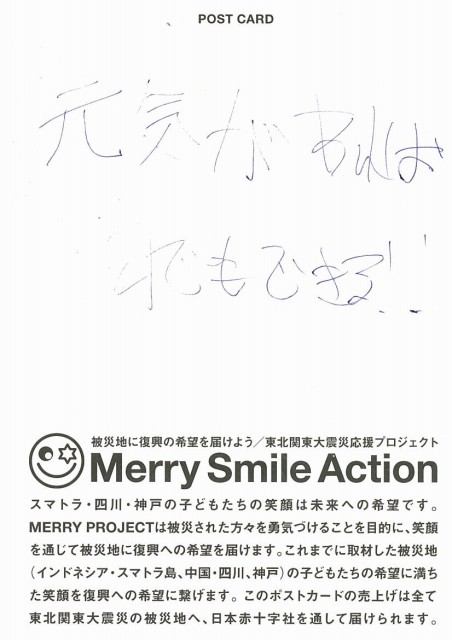 POST CARD
元気があれば
でもできる!!
被災地に復興の希望を届けよう／東北関東大震災応援プロジェクト
Merry Smile Action
スマトラ・四川・神戸の子どもたちの笑顔は未来への希望です。
MERRY PROJECTは被災された方々を勇気づけることを目的に、笑顔
を通じて被災地に復興への希望を届けます。これまでに取材した被災地
（インドネシア・スマトラ島、中国・四川、神戸）の子どもたちの希望に満ち
た笑顔を復興への希望に繋げます。このポストカードの売上げは全て
東北関東大震災の被災地へ、日本赤十字社を通して届けられます。